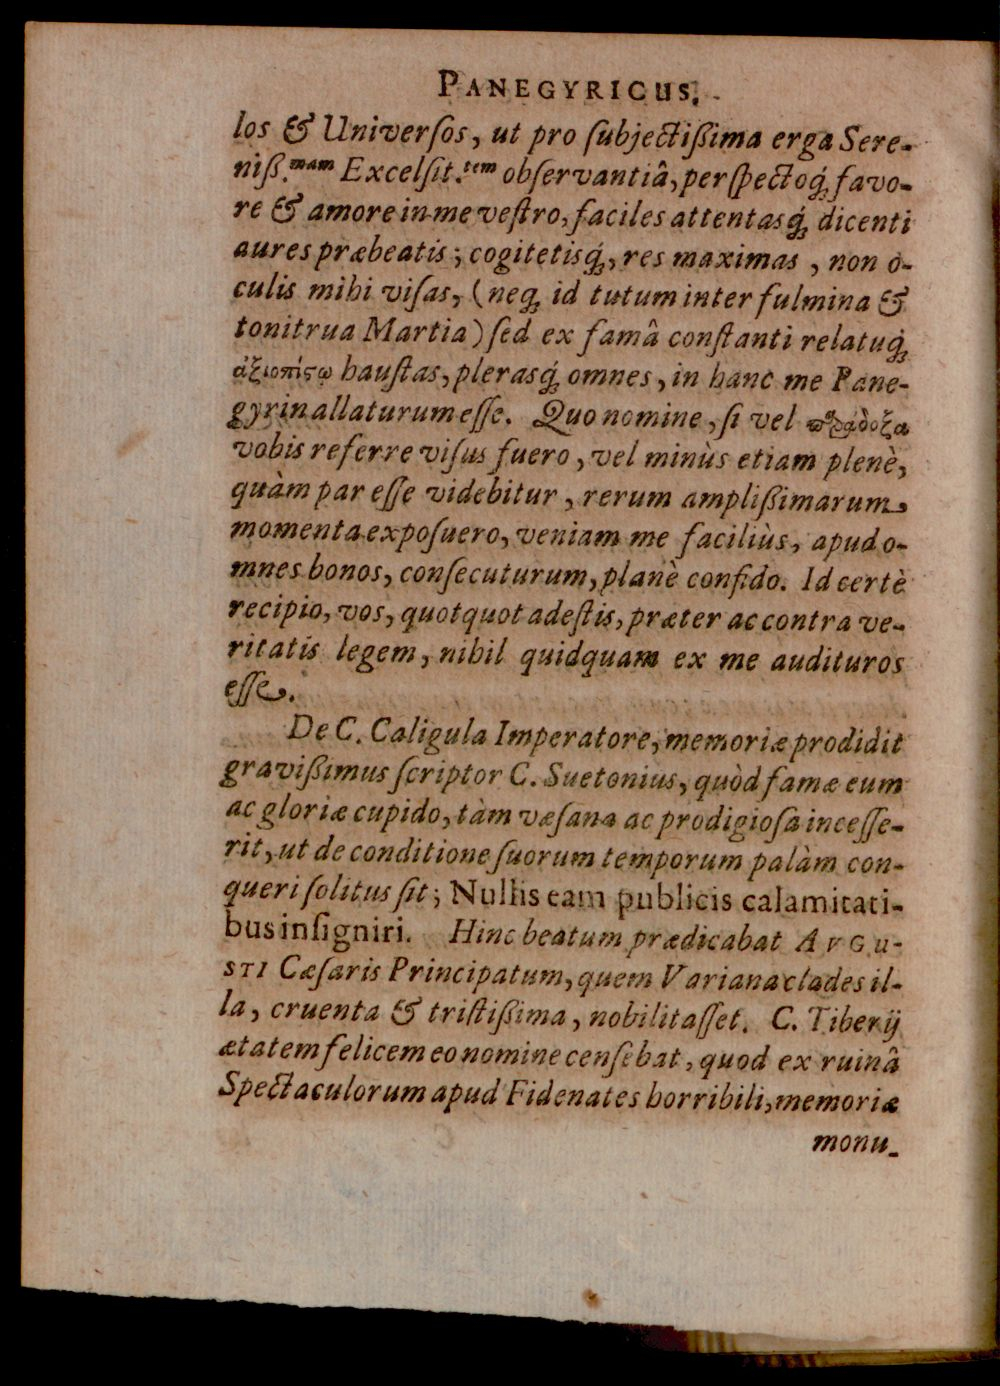 PANEGYRICUS.
los & Univerſos, ut pro ſubjectißima erga Sere-
niß.mam Excelſit.tem obſervantiâ, perſpectoq́; favo-
re & amore in me veſtro, faciles attentasq́; dicenti
aures præbeatis; cogitetisq́;, res maximas, non o-
culis mihi viſas, (neq; id tutum inter fulmina &
tonitrua Martia) ſed ex famâ conſtanti relatuq́;
ἀξιοπίςῳ hauſtas, plerasq́; omnes, in hanc me Pane-
gyrin allaturum eſſe. Quo nomine, ſi vel παράδοξα
vobis referre viſus fuero, vel minùs etiam plenè,
quàm par eſſe videbitur, rerum amplißimarum
momenta expoſuero, veniam me faciliùs, apud o-
mnes bonos, conſecuturum, planè confido. Id certè
recipio, vos, quotquot adeſtis, præter ac contra ve-
ritatis legem, nihil quidquam ex me audituros
eſſe.
De C. Caligula Imperatore, memoriæ prodidit
gravißimus ſcriptor C. Suetonius, quòd famæ eum
ac gloriæ cupido, tàm væſana ac prodigioſa inceſſe-
rit, ut de conditione ſuorum temporum palàm con-
queri ſolitus ſit; Nullis eam publicis calamitati-
bus inſigniri. Hinc beatum prædicabat AVGU-
STI Cæſaris Principatum, quem Variana clades il-
la, cruenta & triſtißima, nobilitaſſet. C. Tiberij
ætatem felicem eo nomine cenſebat, quod ex ruinâ
Spectaculorum apud Fidenates horribili, memoriæ
monu-